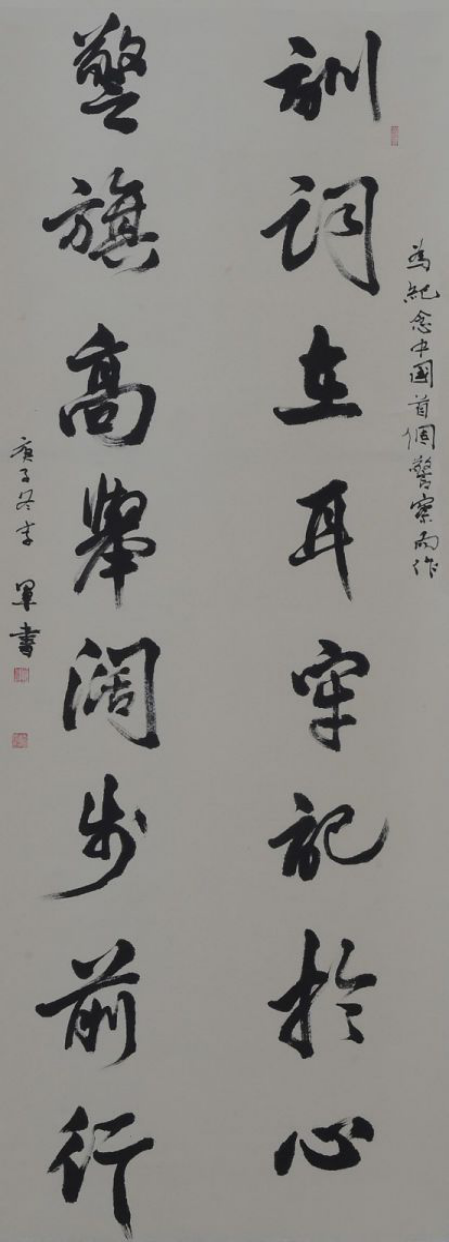 為紀念中國首個警察而作
訓詞在耳牢記於心
警旗高舉闊步前行
庚子冬李軍書